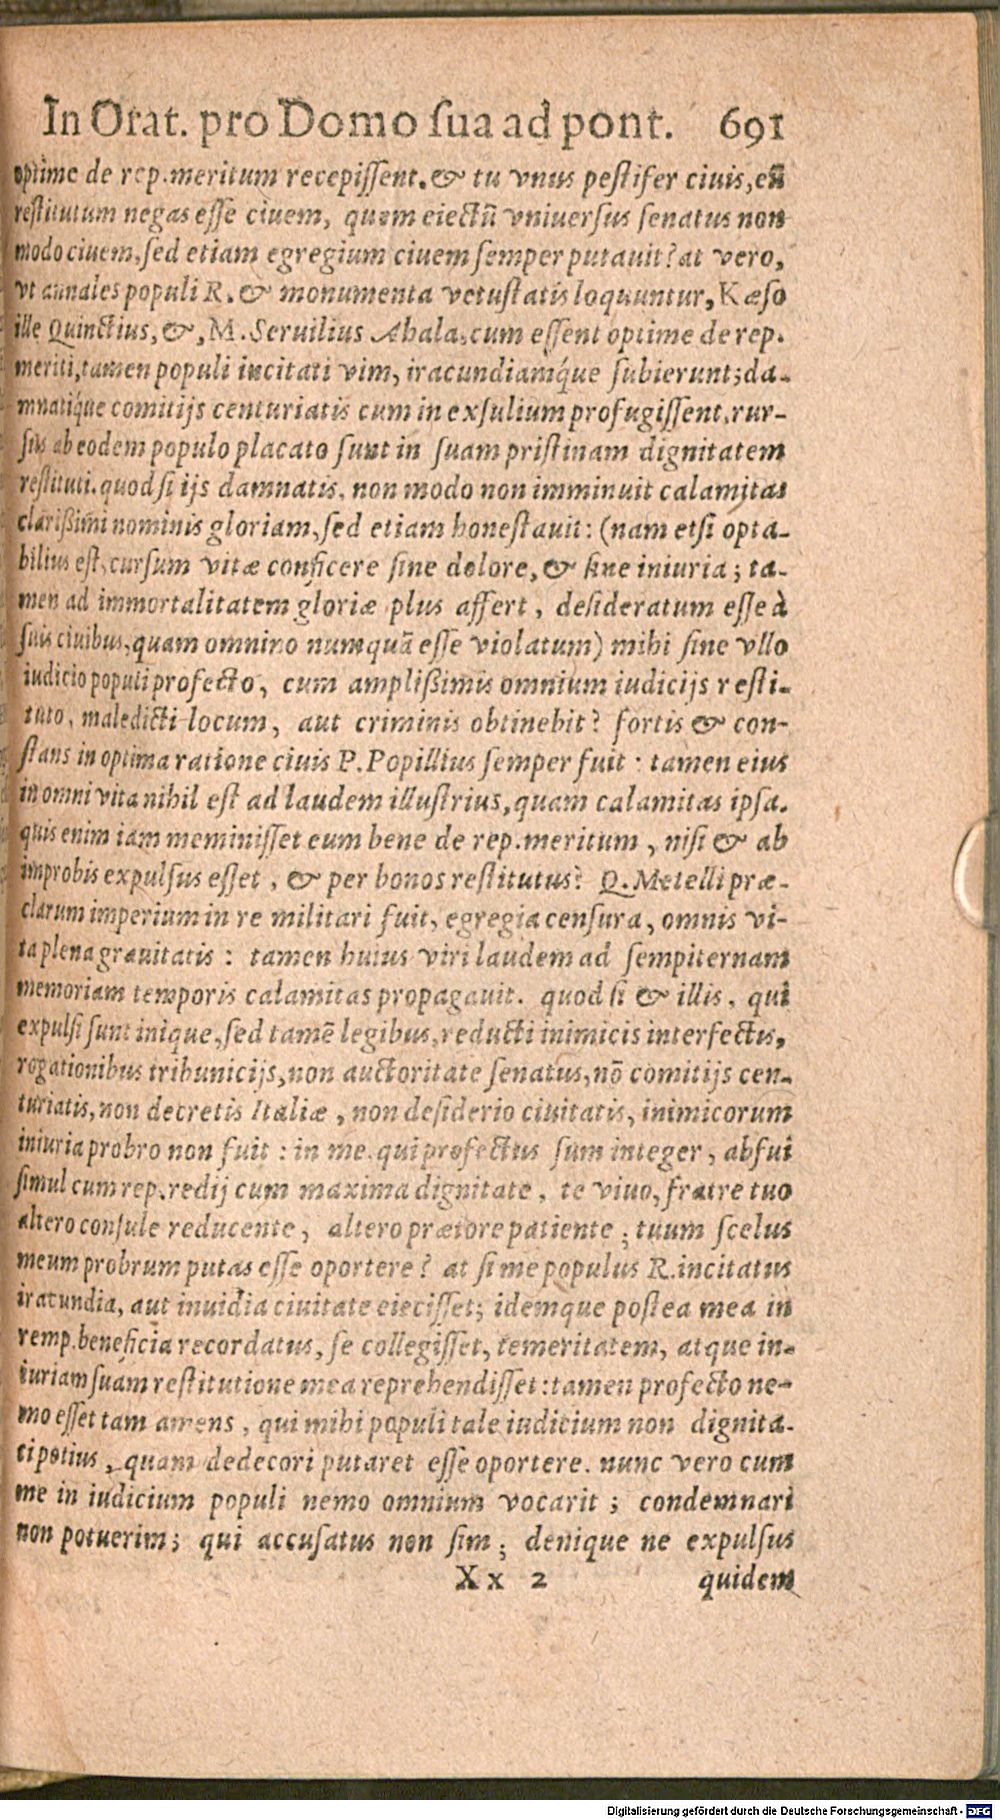 In Orat. pro Domo ſua ad pont. 691
optime de rep. meritum recepiſſent. & tu vnus peſtifer ciuis, eũ
reſtitutum negas eſſe ciuem, quem eiectũ vniuerſus ſenatus non
modo ciuem, ſed etiam egregium ciuem ſemper putauit? at vero,
vt annales populi R. & monumenta vetuſtatis loquuntur, Kæſo
ille Quinctius, &, M. Seruilius Ahala, cum eſſent optime de rep.
meriti, tamen populi incitati vim, iracundiamq́ue ſubierunt; da-
mnatiq́ue comitijs centuriatis cum in exſulium profugiſſent, rur-
ſus ab eodem populo placato ſunt in ſuam priſtinam dignitatem
reſtituti. quod ſi ijs damnatis, non modo non imminuit calamitas
clarißimi nominis gloriam, ſed etiam honeſtauit: (nam etſi opta-
bilius eſt, curſum vitæ conficere ſine dolore, & ſine iniuria; ta-
men ad immortalitatem gloriæ plus affert, deſideratum eſſe à
ſuis ciuibus, quam omnino numquã eſſe violatum) mihi ſine vllo
iudicio populi profecto, cum amplißimis omnium iudicijs reſti-
tuto, maledicti locum, aut criminis obtinebit? fortis & con-
ſtans in optima ratione ciuis P. Popillius ſemper fuit: tamen eius
in omni vita nihil eſt ad laudem illuſtrius, quam calamitas ipſa.
quis enim iam meminiſſet eum bene de rep. meritum, niſi & ab
improbis expulſus eſſet, & per bonos reſtitutus? Q. Metelli præ-
clarum imperium in re militari fuit, egregia cenſura, omnis vi-
ta plena grauitatis: tamen huius viri laudem ad ſempiternam
memoriam temporis calamitas propagauit. quod ſi & illis, qui
expulſi ſunt inique, ſed tamẽ legibus, reducti inimicis interfectis,
rogationibus tribunicijs, non auctoritate ſenatus, nõ comitijs cen-
turiatis, non decretis Italiæ, non deſiderio ciuitatis, inimicorum
iniuria probro non fuit: in me, qui profectus ſum integer, abfui
ſimul cum rep. redij cum maxima dignitate, te viuo, fratre tuo
altero conſule reducente, altero prætore patiente; tuum ſcelus
meum probrum putas eſſe oportere? at ſi me populus R. incitatus
iracundia, aut inuidia ciuitate eieciſſet; idemque poſtea mea in
remp. beneficia recordatus, ſe collegiſſet, temeritatem, atque in-
iuriam ſuam reſtitutione mea reprehendiſſet: tamen profecto ne-
mo eſſet tam amens, qui mihi populi tale iudicium non dignita-
ti potius, quam dedecori putaret eſſe oportere. nunc vero cum
me in iudicium populi nemo omnium vocarit; condemnari
non potuerim; qui accuſatus non ſim; denique ne expulſus
Xx 2 quidem
Digitalisierung gefördert durch die Deutsche Forschungsgemeinschaft - DFG